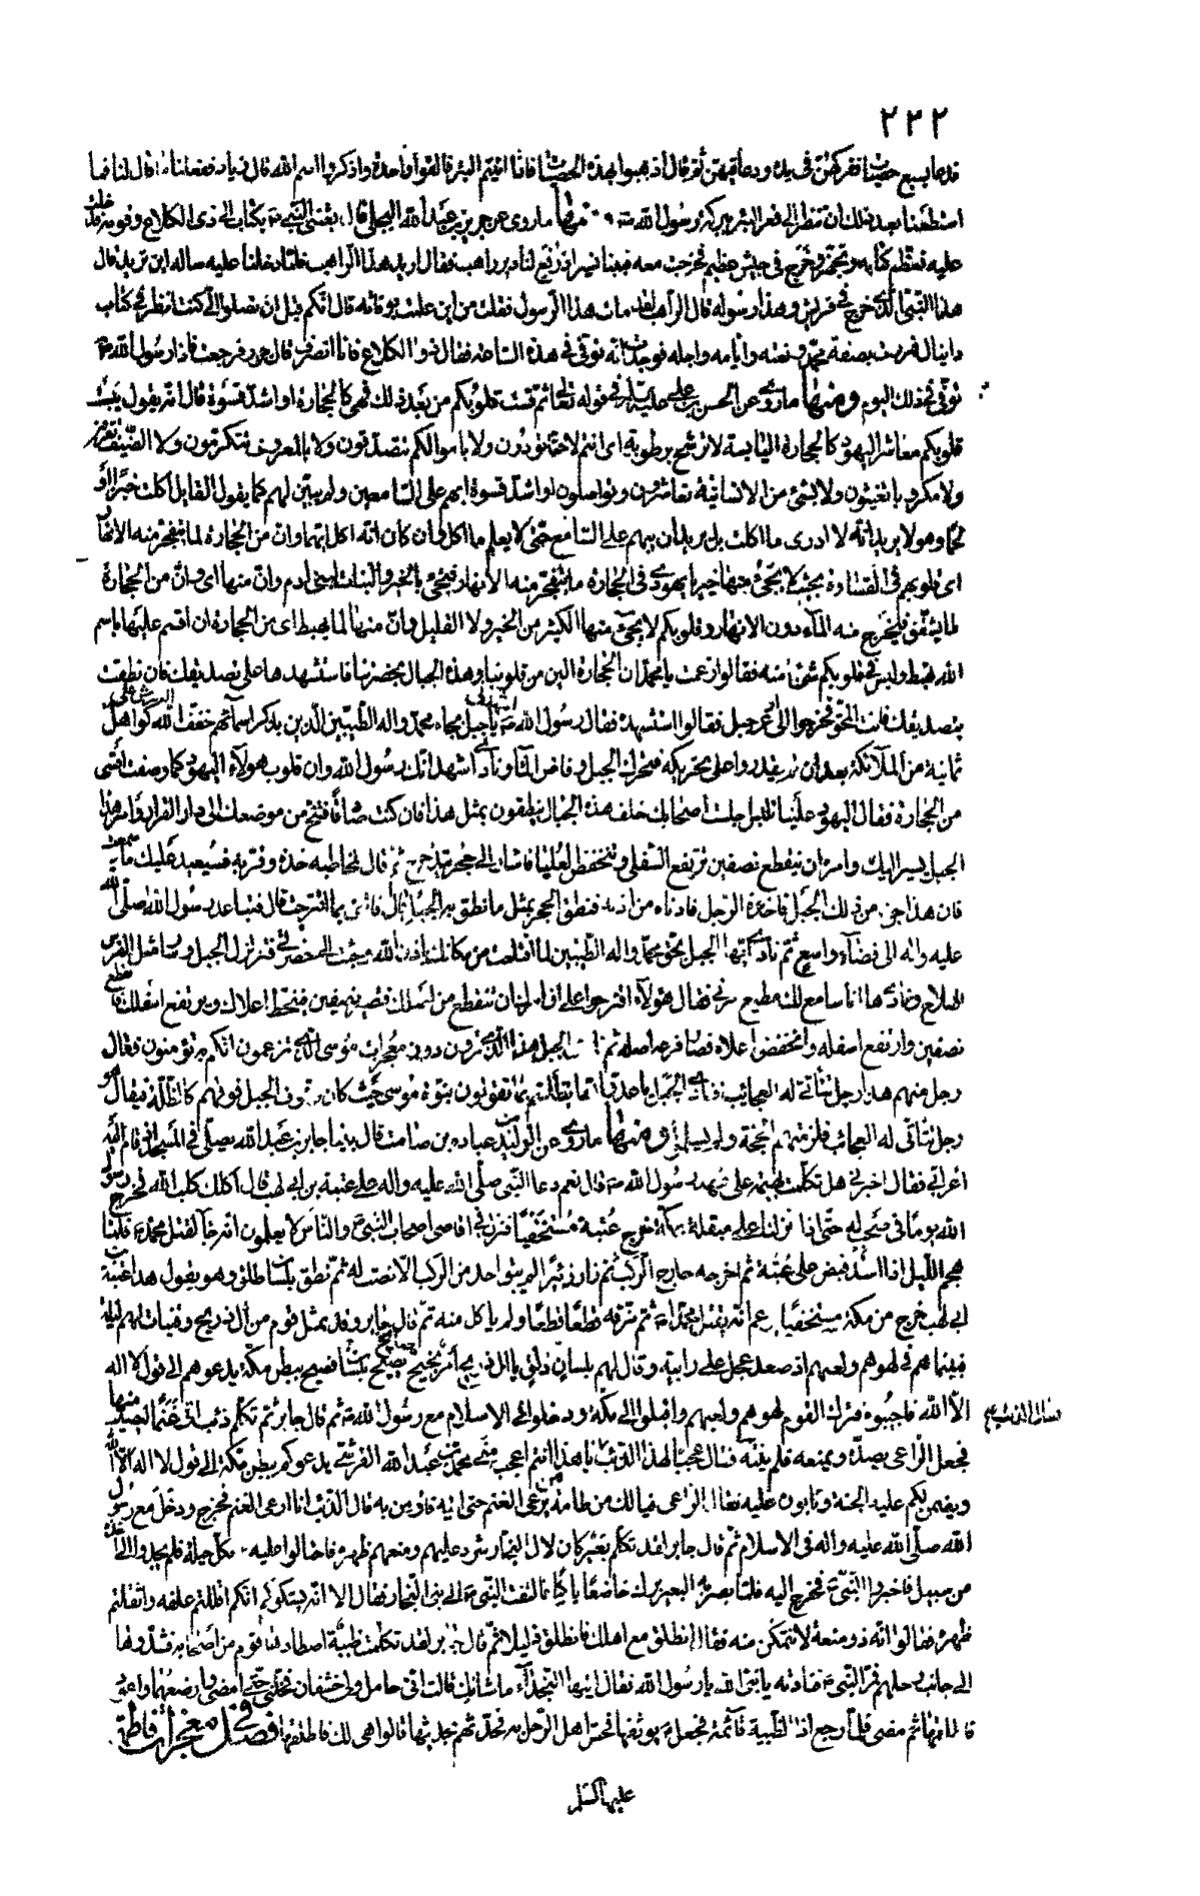 ٢٣٢
فدعا بسبع حصيات ففركهن في يده ودعا فيهن ثم قال اذهبوا بهذه الحصيات فاذا اتيتم البئر فالقوا واحدة واذكروا اسم الله قال زياد ففعلنا ما قال لنا فما
استطعنا بعد ذلك ان ننظر الى قعر البئر ببركة رسول الله ص ومنها ما روى عن جرير بن عبد الله البجلي قال بعثني النبي ص بكتاب الى ذى الكلاع وقومه فدخلت
عليه فعظم كتابه وتجهز وخرج في جيش عظيم فخرجت معه فبينا نسير اذ رفع لنا دير راهب فقال اريد هذا الراهب فلما دخلنا عليه ساله اين تريد قال
هذا النبي الذي خرج في قريش وهذا رسوله قال الراهب لقد مات هذا الرسول فقلت من اين علمت بوفاته قال انكم قبل ان تصلوا الى كنت انظر في كتاب
دانيال مررت بصفة محمد ونعته وايامه واجله فوجدت انه توفي في هذه الساعة فقال ذو الكلاع فانا انصرف قال جرير فرجعت فاذا رسول الله ص
توفي في ذلك اليوم ومنها ما روى عن الحسن بن علي عليه السلام في قوله تعالى ثم قست قلوبكم من بعد ذلك فهي كالحجارة او اشد قسوة قال انه يقول يبست
قلوبكم معاشر اليهود كالحجارة اليابسة لا ترشح برطوبة اى انتم لا حقا تؤدون ولا باموالكم تتصدقون ولا بالمعروف تتكرمون ولا الضيف تقرون
ولا مكروبا تغيثون ولا بشئ من الانسانية تعاشرون وتواصلون او اشد قسوة ابهم على السامعين ولم يبين لهم كما يقول القايل اكلت خبزا او
لحما وهو لا يريد انه لا ادرى ما اكلت بل يريد ان يبهم على السامع حتى لا يعلم ما اكل وان كان انه اكل ايهما وان من الحجارة لما يتفجر منه الانهار
اى قلوبهم في القساوة بحيث لا يجئ منها خير يا يهود وفي الحجارة ما يتفجر منه الانهار فيجئ بالخير والنبات لبني ادم وان منها اى وان من الحجارة
لما يشقق فيخرج منه الماء دون الانهار وقلوبكم لا يجئ منها الكثير من الخير ولا القليل وان منها لما يهبط اى من الحجارة ان اقسم عليها باسم
الله هبط وليس في قلوبكم شئ منه فقالوا زعمت يا محمد ان الحجارة الين من قلوبنا وهذه الجبال بحضرتنا فاستشهدها على تصديقك فان نطقت
بتصديقك فانت المحق فخرجوا الى اوعر جبل فقالوا استشهده فقال رسول الله ص يا جبل بجاه محمد واله الطيبين الذين بذكر اسمائهم خفف الله العرش على كواهل
ثمانية من الملائكة بعد ان لم يقدروا على تحريكه فتحرك الجبل وفاض الماء ونادى اشهد انك رسول الله وان قلوب هؤلاء اليهود كما وصفت اقسى
من الحجارة فقال اليهود علينا تلبس اجلست اصحابك خلف هذه الجبال ينطقون بمثل هذا فان كنت صادقا فتنح من موضعك الى ذا القرار وامر هذا
الجبل يسير اليك وامره ان ينقطع نصفين ترتفع السفلى وتنخفض العليا فاشار الى حجر تدحرج فتدحرج ثم قال لمخاطبه خذه وقربه فسيعيد عليك ما سمعت
فان هذا جزء من ذلك الجبل فاخذه الرجل فادناه من اذنه فنطق الحجر بمثل ما نطق به الجبل قال فاتنى بما اقترحت قال فتباعد رسول الله صلى الله
عليه واله الى فضاء واسع ثم نادى ايها الجبل بحق محمد واله الطيبين لما اقتلعت من مكانك باذن الله وجئت الى حضرتي فتزلزل الجبل وسار مثل الفرس
الهملاج ونادى ها انا سامع لك مطيع مرني فقال هؤلاء اقترحوا على ان امرك ان تنقطع من اصلك فتصير نصفين فينحط اعلاك ويرتفع اسفلك فانقطع
نصفين وارتفع اسفله وانخفض اعلاه فصار فرعه اصله ثم نادى الجبل هذا الذي ترون دون معجزات موسى الذي تزعمون انكم به تؤمنون فقال
رجل منهم هذا رجل تتأتى له العجايب فنادى الجبل يا عدو الله ابطلتم بما تقولون نبوة موسى حيث كان وقوف الجبل فوقهم كالظلة فيقال هو
رجل تتأتى له العجايب فلزمتهم الحجة ولم يسلموا ومنها ما روى عن الوليد بن عباده بن صامت قال بينا جابر بن عبد الله يصلى في المسجد اذ قام اليه
اعرابي فقال اخبرني هل تكلمت بهيمة على عهد رسول الله ص قال نعم دعا النبي صلى الله عليه واله على عتبة بن ابي لهب قال اكلك كلب الله فخرج رسول
الله يوما في صحب له حتى اذا نزلنا على مبقلة بمكة خرج عتبة مستخفيا فنزل في اقاصى اصحاب النبي ص والناس لا يعلمون انه جاء لقتل محمد ص فلما
هجم الليل اذا اسد قبض على عتبة ثم اخرجه خارج الركب ثم زار زئيرا لم يبق احد من الركب الا نصت له ثم نطق بلسان طلق وهو يقول هذا عتبة بن
ابي لهب خرج من مكة مستخفيا يزعم انه يقتل محمدا ص ثم مزقه قطعا قطعا ولم ياكل منه ثم قال جابر وقد تمثل قوم من ال ذريح وقينات لهم ليلة
فبينما هم في لهوهم ولعبهم اذ صعد عجل على رابية وقال لهم بلسان ذلق يا ال ذريح امر نجيح صايح يصيح بلسان فصيح ببطن مكة يدعوهم الى قول لا اله
الا الله فاجيبوه فترك القوم لهوهم ولعبهم واقبلوا الى مكة ودخلوا في الاسلام مع رسول الله ص ثم قال جابر ثم تكلم ذئب اتى غنما ليصيب منها
فجعل الراعى يصده ويمنعه فلم ينته فقال عجبا لهذا الذئب يا هذا انتم اعجب منى محمد بن عبد الله القرشي يدعوكم ببطن مكة الى قول لا اله الا الله
ويضمن لكم عليه الجنة وتابون عليه فقال الراعى فيا لك من طامة من يرعى الغنم حتى اتيه فاؤمن به قال الذئب انا ارعى الغنم فخرج ودخل مع رسول
الله صلى الله عليه واله في الاسلام ثم قال جابر لقد تكلم بعير كان لال النجار شرد عليهم ومنعهم ظهره فاحتالوا عليه بكل حيلة فلم يجدوا الى اخذه
من سبيل فاخبروا النبي ص فخرج اليه فلما بصر به البعير برك خاضعا باكيا فالتفت النبي ص الى بنى النجار فقال الا انه يشكوكم انكم اقللتم علفه واثقلتم
ظهره فقالوا انه ذو منعة لا نتمكن منه فقال انطلق مع اهلك فانطلق ذليلا ثم قال جابر لقد تكلمت ظبية اصطادها قوم من اصحابه فشدوها
الى جانب رحلهم فمر النبي ص فنادته يا نبي الله يا رسول الله فقال ايتها النجداء ما شانك قالت انى حامل ولى خشفان فخلني حتى امضى وارضعهما واعود
قال فاطلقها ثم مضى فلما رجع اذا الظبية قائمة فجعل ص يوثقها فحس اهل الرحل به فحدثهم بحديثها قالوا هي لك فاطلقها فصل في معجزات فاطمة
عليها السلام